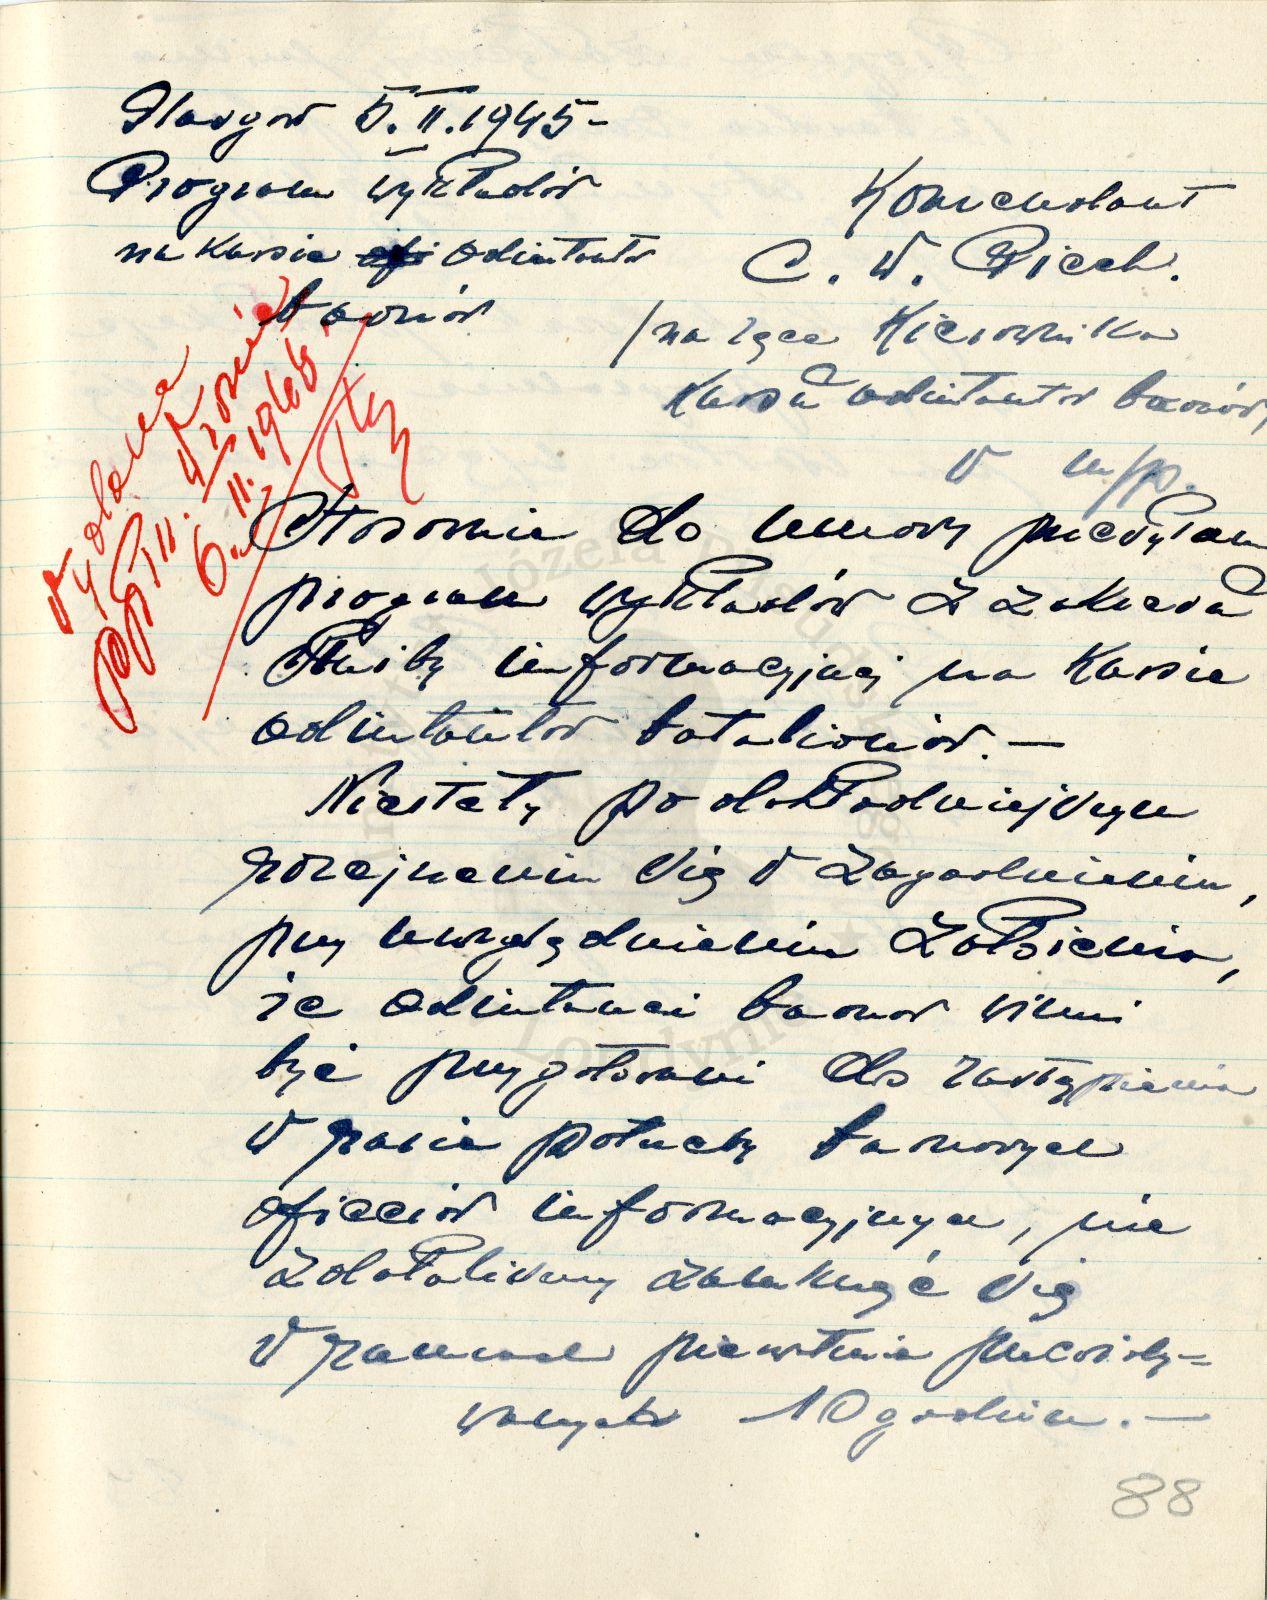 Glasgow 5.II.1945-
Program wykładów
na kursie adiutantów
baonów
Komendant
C. W. Piech.
/na ręce Kierownika
Kursu adiutantów baonów,
w m/p.
Wydana
III.
6.II.194
Stosownie do umowy przesyłam
program wykładów z zakresu
służby informacyjnej na kursie
adiutantów batalionów. —
Niestety po dokładniejszym
rozejrzeniu się w zagadnieniu,
przy uwzględnieniu założenia,
że adiutanci baonów winni
być przygotowani do zastąpienia
w razie potrzeby baonowych
oficerów informacyjnych, nie
zdołaliśmy zamknąć się
w ramach pierwotnie przewidy-
wanych 10 godzin. —
88
Instytut Józefa Piłsudskiego
Londynie